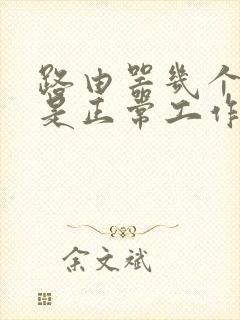 路由器几个
是正常工作
余文斌